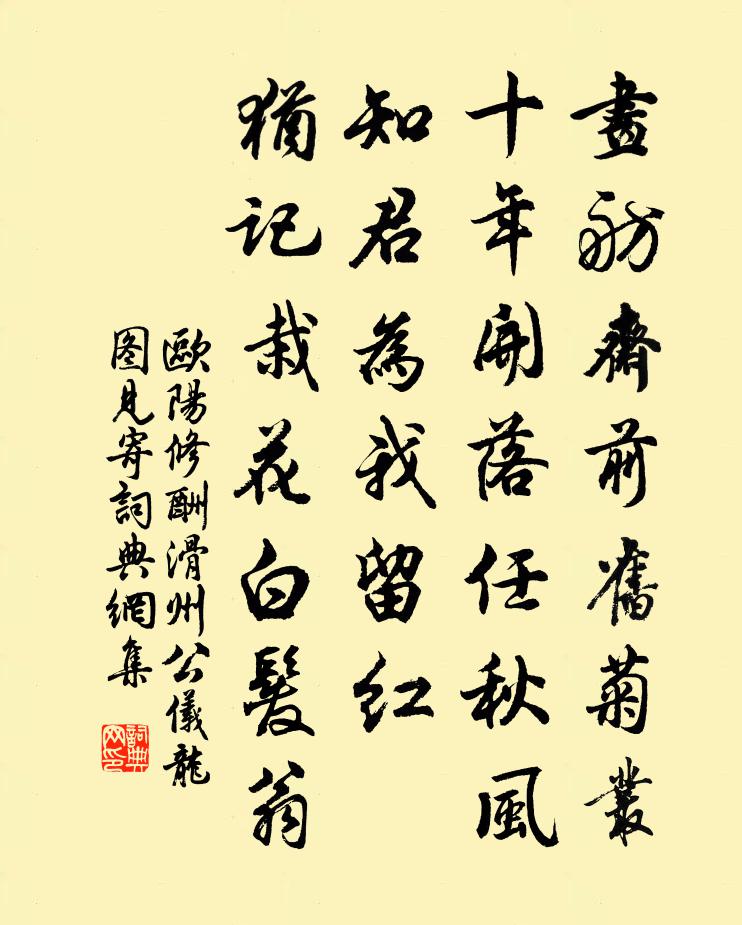 畫舫齋前舊菊叢
十年開落任秋風
知君為我留紅
猶記栽花白髮翁
歐陽修酬滑州公儀龍
圖見寄詞典網集
詞典網印